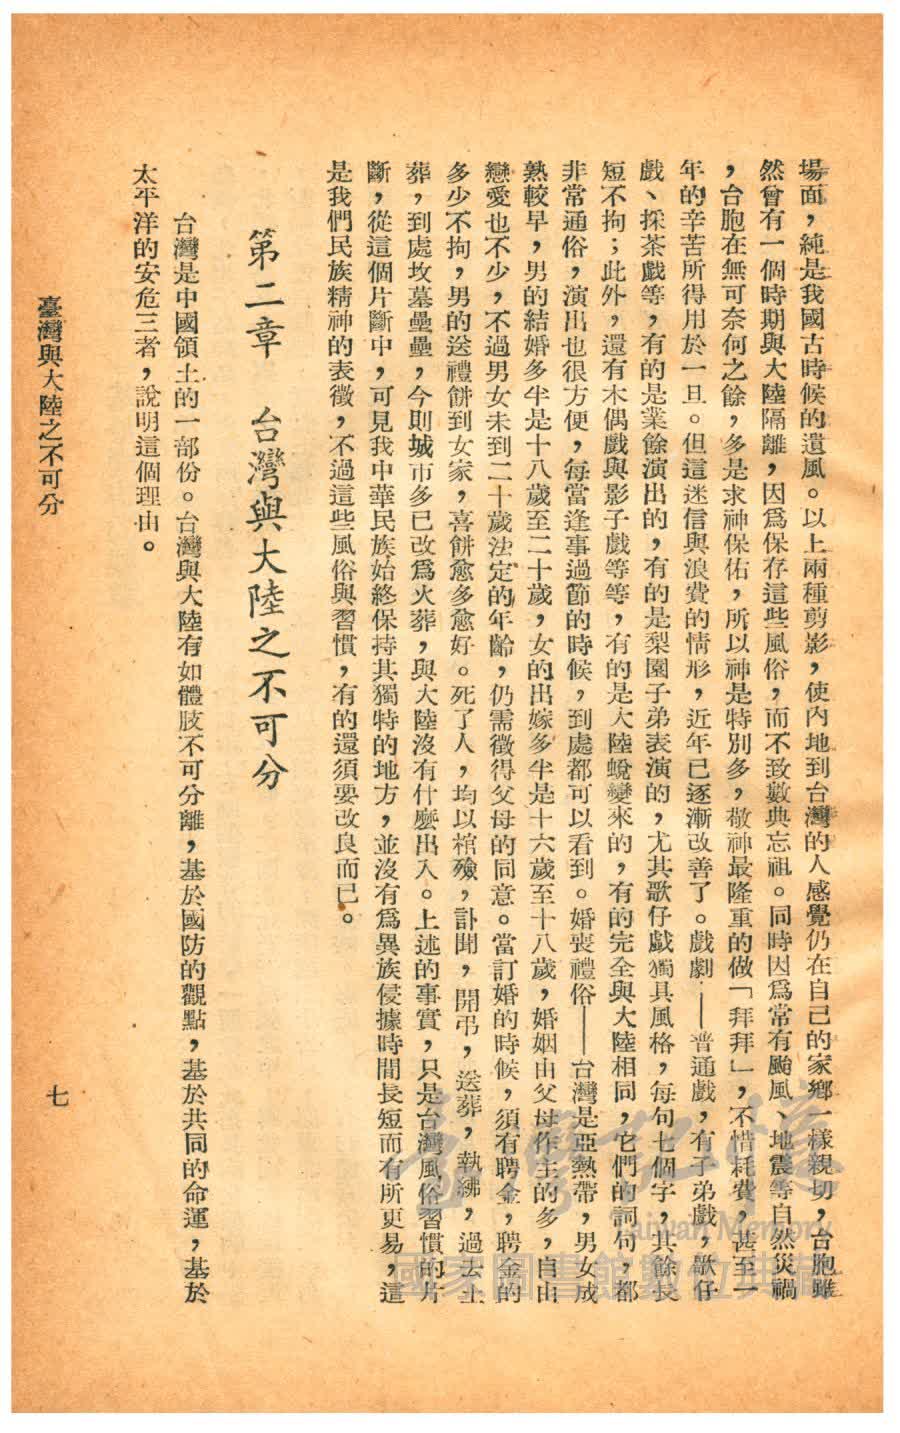 場面，純是我國古時候的遺風。以上兩種剪影，使內地到台灣的人感覺仍在自己的家鄉一樣親切，台胞雖
然曾有一個時期與大陸隔離，因爲保存這些風俗，而不致數典忘祖。同時因爲常有颱風、地震等自然災禍
，台胞在無可奈何之餘，多是求神保佑，所以神是特別多，敬神最隆重的做「拜拜」，不惜耗費，甚至一
年的辛苦所得用於一旦。但這迷信與浪費的情形，近年已逐漸改善了。戲劇——普通戲，有子弟戲，歌仔
戲、採茶戲等，有的是業餘演出的，有的是梨園子弟表演的，尤其歌仔戲獨具風格，每句七個字，其餘長
短不拘；此外，還有木偶戲與影子戲等等，有的是大陸蛻變來的，有的完全與大陸相同，它們的詞句，都
非常通俗，演出也很方便，每當逢事過節的時候，到處都可以看到。婚喪禮俗——台灣是亞熱帶，男女成
熟較早，男的結婚多半是十八歲至二十歲，女的出嫁多半是十六歲至十八歲，婚姻由父母作主的多，自由
戀愛也不少，不過男女未到二十歲法定的年齡，仍需徵得父母的同意。當訂婚的時候，須有聘金，聘金的
多少不拘，男的送禮餅到女家，喜餅愈多愈好。死了人，均以棺殮，訃聞，開弔，送葬，執紼，過去土
葬，到處坟墓壘壘，今則城市多已改爲火葬，與大陸沒有什麼出入。上述的事實，只是台灣風俗習慣的片
斷，從這個片斷中，可見我中華民族始終保持其獨特的地方，並沒有爲異族侵據時間長短而有所更易，這
是我們民族精神的表徵，不過這些風俗與習慣，有的還須要改良而已。
第二章　台灣與大陸之不可分
台灣是中國領土的一部份。台灣與大陸有如體肢不可分離，基於國防的觀點，基於共同的命運，基於
太平洋的安危三者，說明這個理由。
臺灣與大陸之不可分
七
臺灣記憶
Taiwan Memory
國家圖書館數位典藏